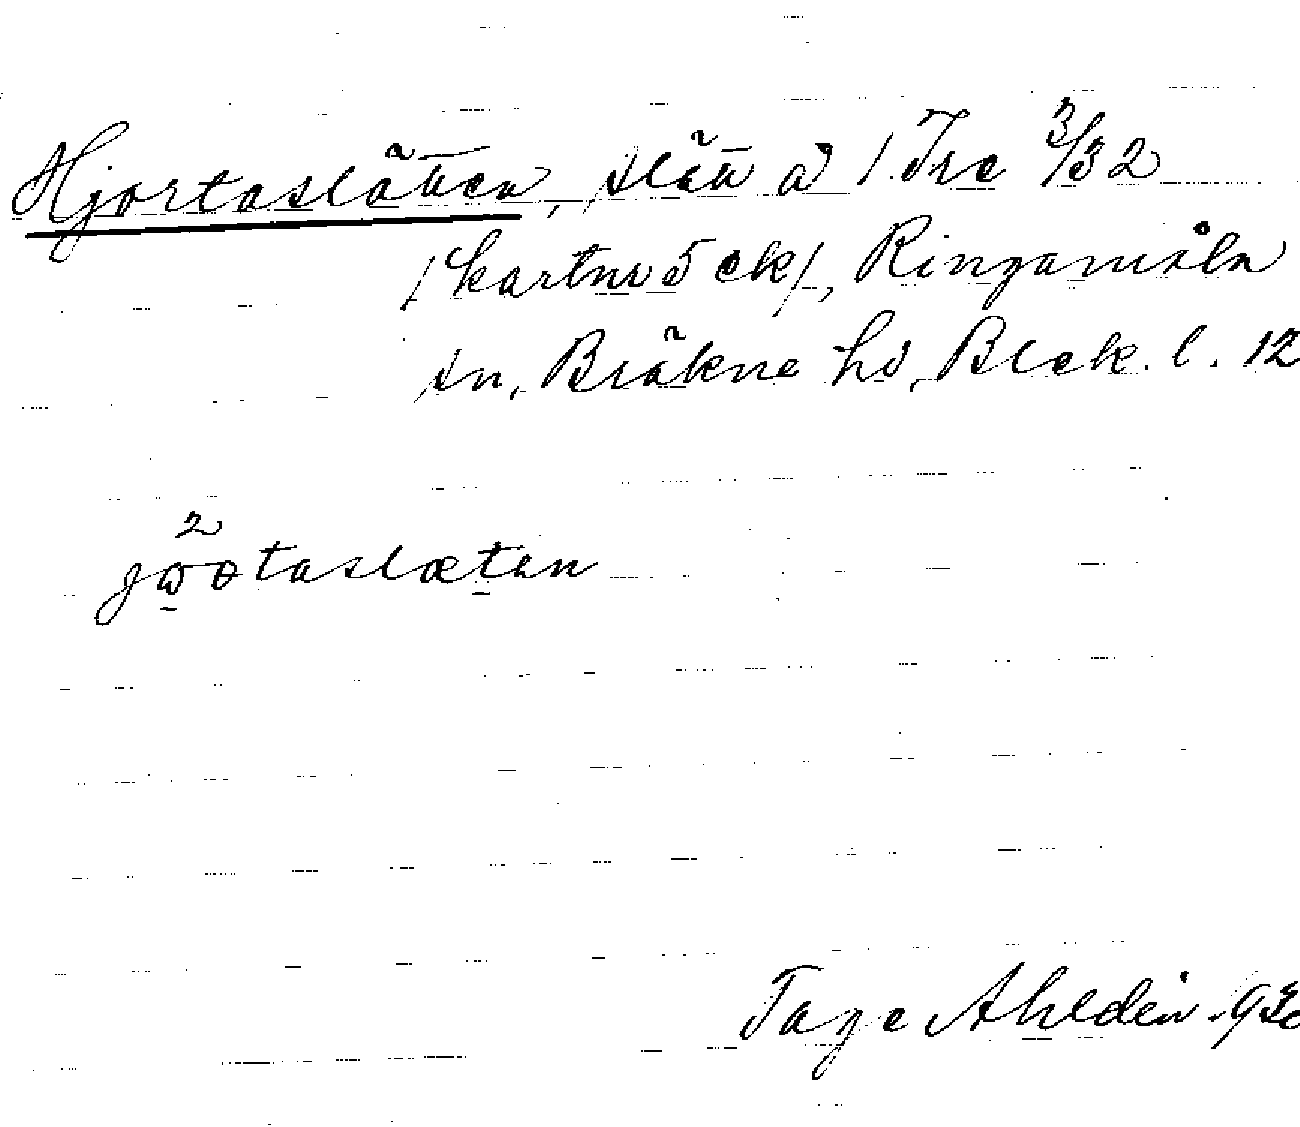 Hjortaslätten, slätt å 1 Tre 3/32
/kartnr 5 ek/, Ringamåla
sn, Bräkne hd, Blek. l. 12
Tage Ahldén. 930